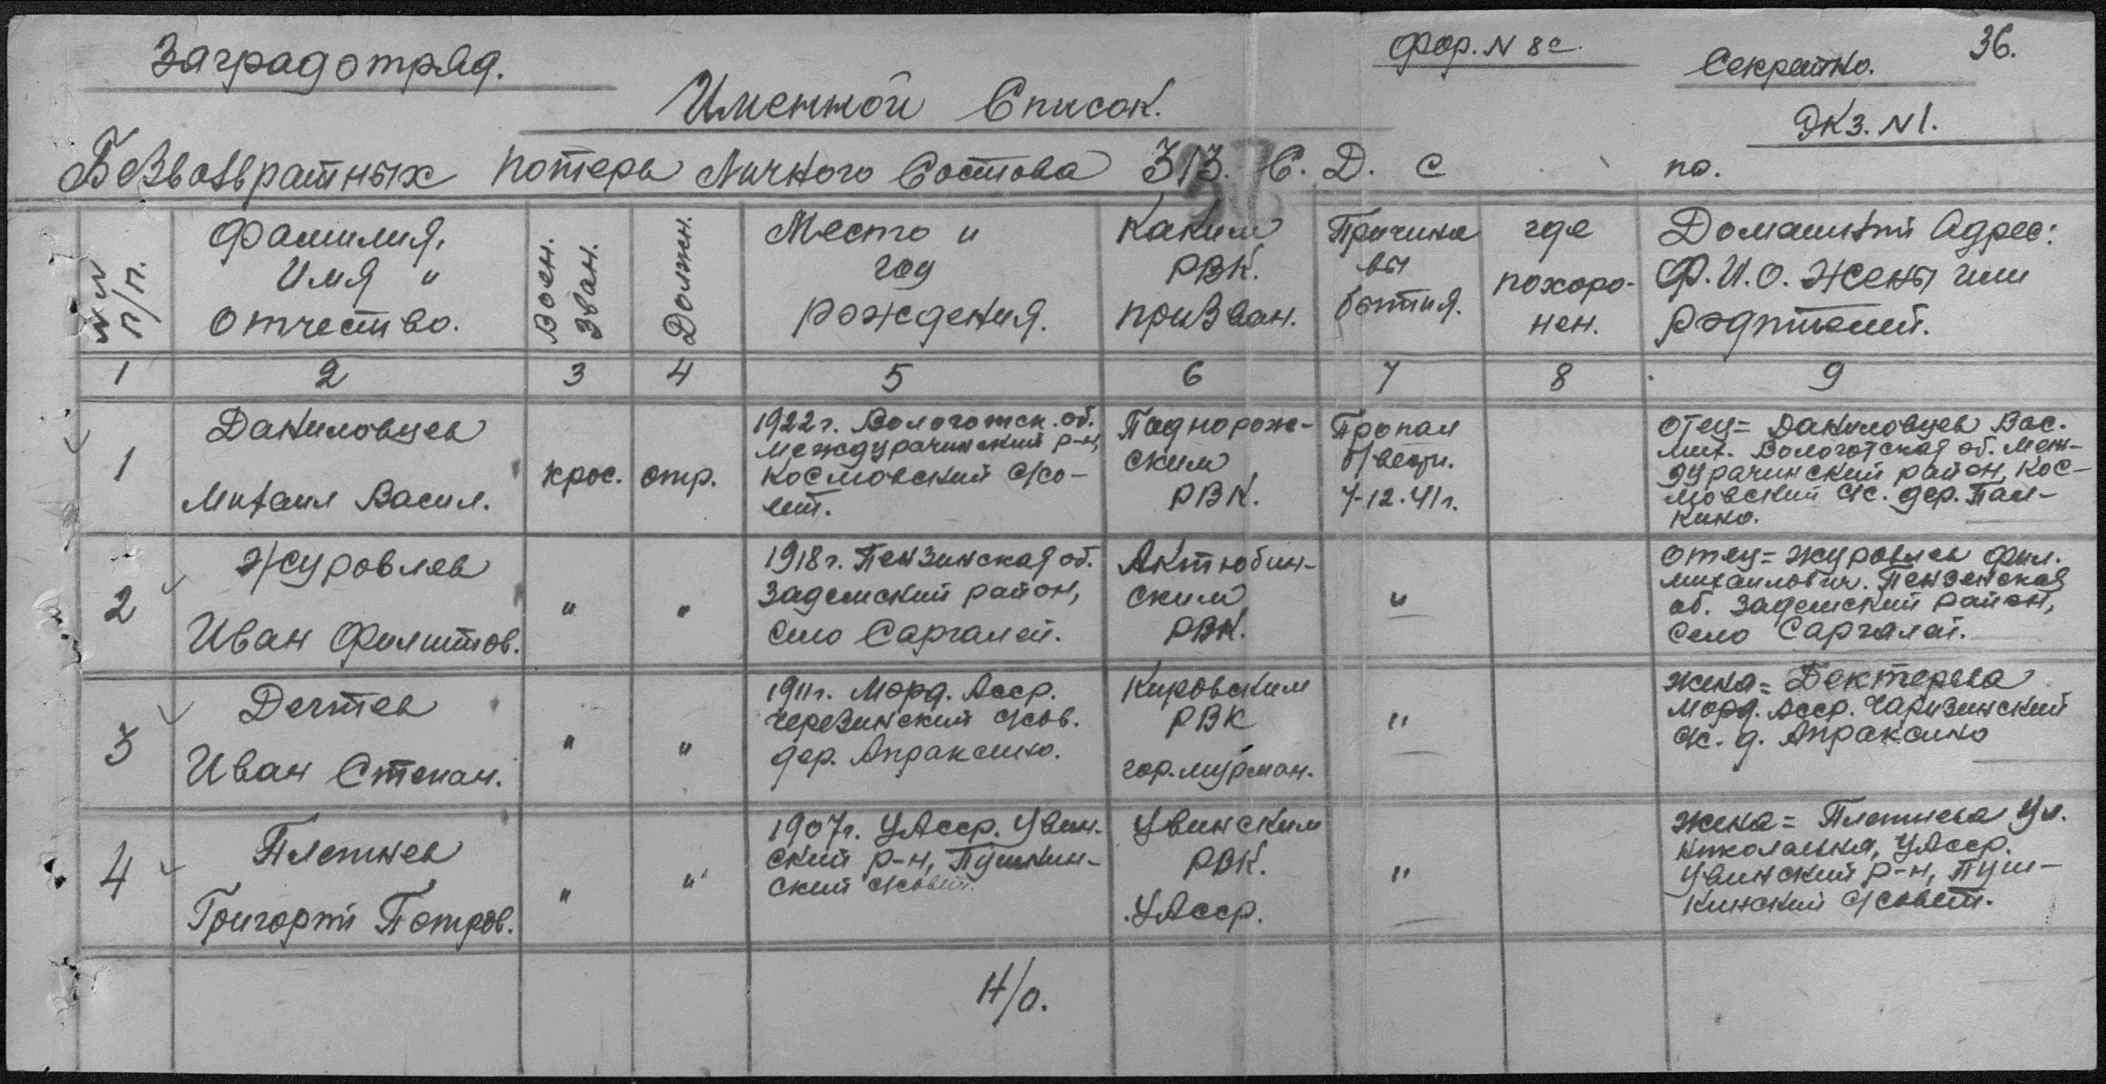 Заградотряд.
Фор. N 8с.
Секретно.
36.
Именной Список.
Экз. N 1.
Безвозвратных потерь Личного Состова 313. С. Д. с по.
NN п/п.
Фамилия,
Имя и
Отчество.
Воен. зван.
Должн.
Место и
год
рождения.
Каким
РВК.
призван.
Причина
вы
бытия.
где
похоро-
нен.
Домашний Адрес:
Ф. И. О. Жены или
Родителей.
1 2 3 4 5 6 7 8 9
1
Даниловцев
Михаил Васил.
крос.
отр.
1922г. Вологотск. об.
Междурачинский р-н,
Космовский с/со-
вет.
Паднорож-
ским
РВК.
Пропал
б/вести.
7.12.41г.
отец= Даниловцев Вас.
Мих. Вологотская об. Меж-
дурачинский район, Кос-
мовский с/с. дер. Пал-
кино.
2
Журовлев
Иван Филиппов.
"
"
1918г. Пензинская об.
Задемский район,
село Саргалей.
Актюбин-
ским
РВК.
"
отец= Журовлев Фил.
Михаилович. Пензенская
об. Задемский район,
село Саргалей.
3
Дегтев
Иван Степан.
"
"
1911г. Морд. Асср.
Черезинский с/сов.
дер. Апраксино.
Кировским
РВК
гор. Мурман.
"
жена= Дектерева
Морд. Асср. Чаризинский
с/с. д. Апраксино
4
Плетнев
Григорий Петров.
"
"
1907г. УАсср. Увин-
ский р-н, Пушкин-
ский с/совет.
Увинским
РВК.
УАсср.
"
жена= Плетнева Ул.
Николаевна, УАсср.
Увинский р-н, Пуш-
кинский с/совет.
Н/о.